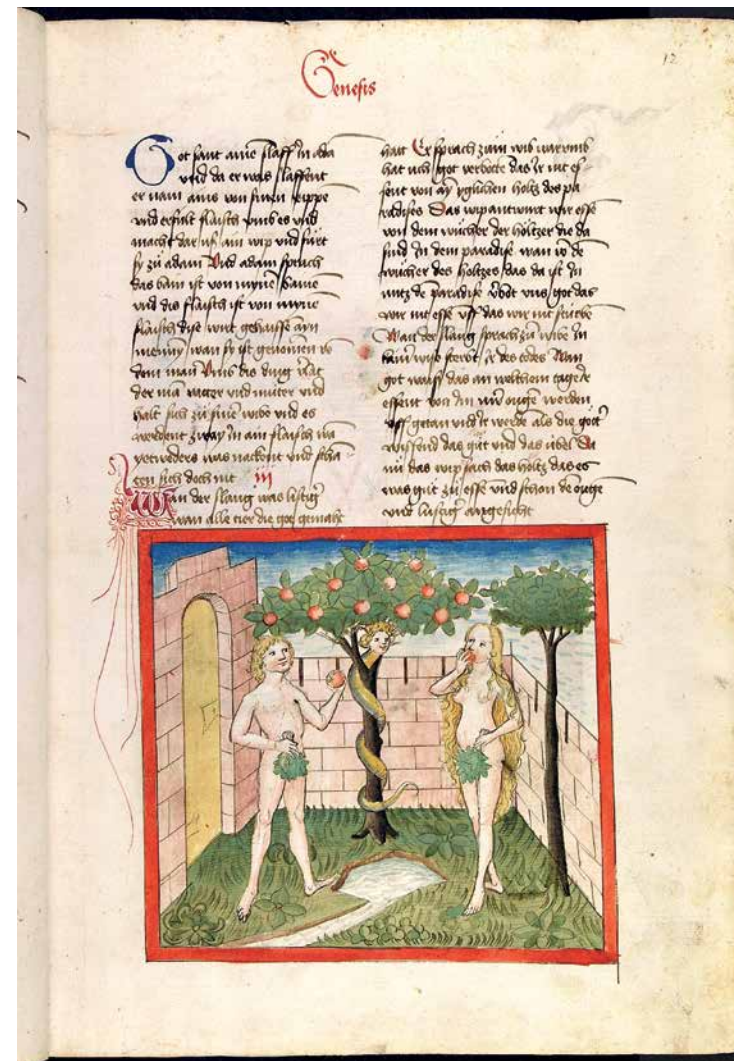 Genesis
12
Got sant ainē slaff jn ada
vnd da er was slaffent
er nam ains von sinen rippe
vnd erfult flaisch vmb es vnd
macht dar uß ain wip vnd furt
sy zů adam Vnd adam sprach
das bain ist von mynē bainē
vnd dis flaisch ist von mynē
flaisch dise wirt gehaissē ayn
wan sy ist genomen vō
dem man Vmb dis ding v̓lat
der mā vatter vnd můter vnd
halt sich zů sinē wibe vnd es
werdent zway jn ain flaisch wā
yetweders was nackent vnd scha
ten sich doch nit iij
Wan der slang was listig̓
wan alle tier die got gemaht
hatt Er sprach zům wib warumb
hat uch got verbottē das ir nit es
sent von ay yglichen holtz des pa
radises Das wip antwurt wir essē
von dem wůcher der höltzer die da
sind jn dem paradise wan vō dē
wůcher des holtzes das da ist jn
mitz dē paradise v̓bot vns got das
wir nit essē uff das wir nit sturbē
Wan der slang sprach zů wibe jn
kain̄ wise sterbt ir des todes Wan
got waiß das an welchem tage ir
essent von jm uw̓ ougē werden
uff getan vnd ir werdē als die gött̓
wissend das gůt vnd das übel Da
nū das wip sach das holtz das es
was gůt zů essē vnd schon dē ougē
vnd lustig angesicht